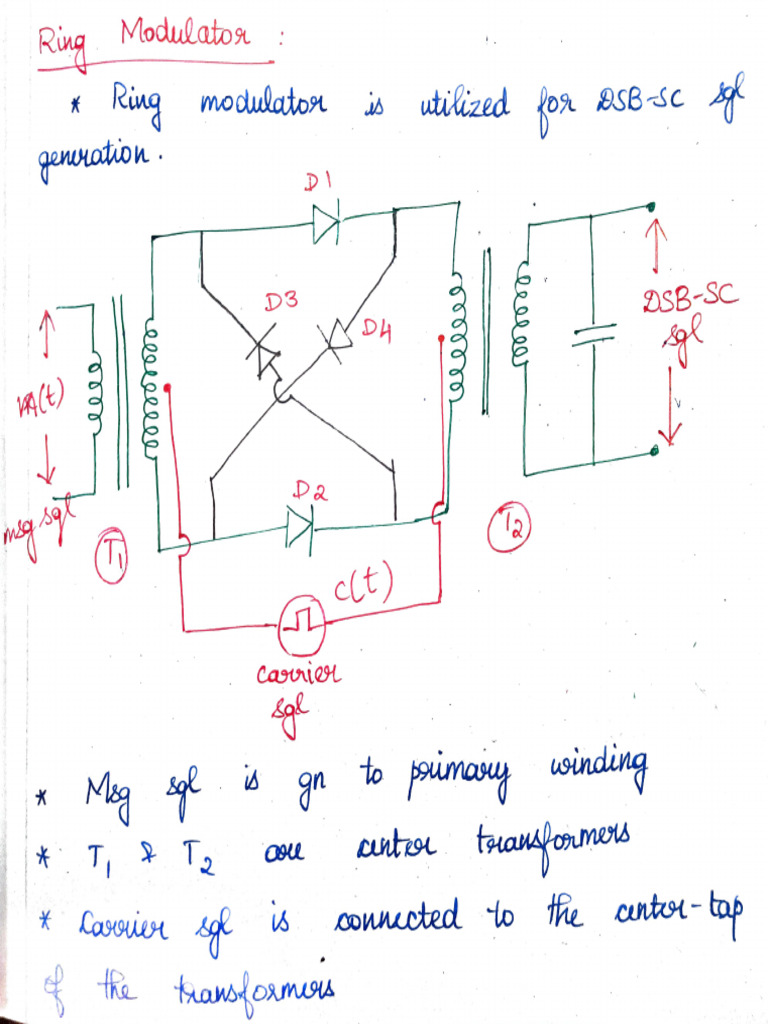 Ring Modulator :
* Ring modulator is utilized for DSB-SC sgl
generation.
D1
D3
D4
DSB-SC
sgl
m(t)
msg sgl
D2
T1
T2
c(t)
carrier
sgl
* Msg sgl is gn to primary winding
* T1 & T2 are center transformers
* Carrier sgl is connected to the center-tap
of the transformers